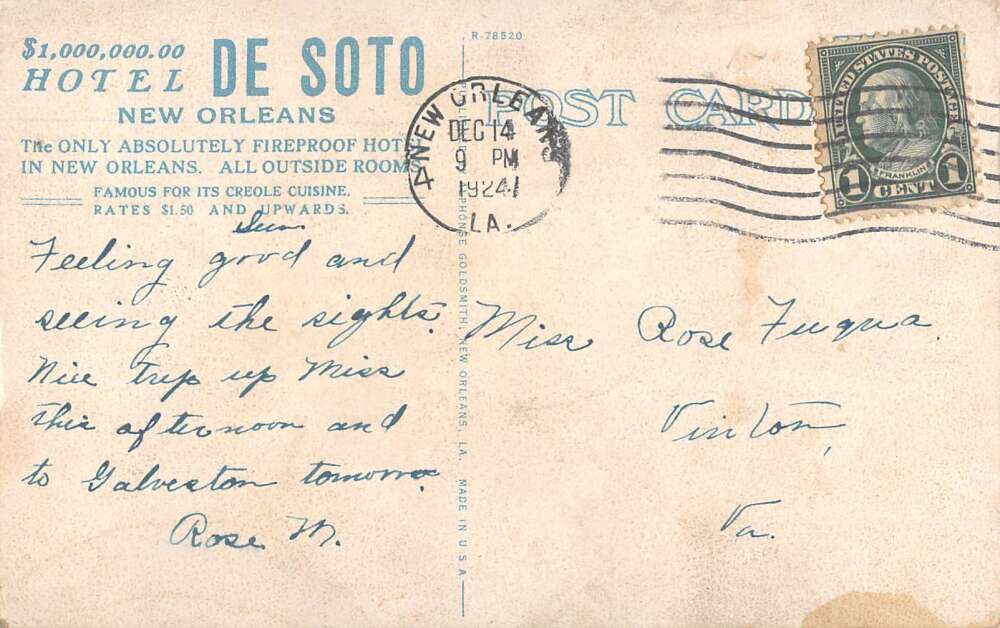 $1,000,000.00
HOTEL DE SOTO
NEW ORLEANS
The ONLY ABSOLUTELY FIREPROOF HOT
IN NEW ORLEANS. ALL OUTSIDE ROOMS
FAMOUS FOR ITS CREOLE CUISINE.
RATES $1.50 AND UPWARDS.
Sun
Feeling good and
seeing the sights.
Nice trip up Miss
this afternoon and
to Galveston tomorro
Rose M.
R-78520
POST CARD
NEW ORLEANS
DEC 14
9 PM
1924
LA.
UNITED STATES POSTAGE
FRANKLIN
1 CENT 1
Miss Rose Fuqua
Vinton,
Va.
ALPHONSE GOLDSMITH, NEW ORLEANS, LA. MADE IN U.S.A